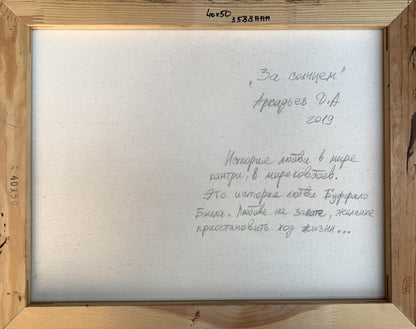 40x50
3588ААА
„За солнцем"
Аркадьев Д.А
2019
История любви в мире
кантри, в мире ковбоев.
Это история любви Буффало
Билла. Любовь на закате, желание
приостановить ход жизни...
40X50